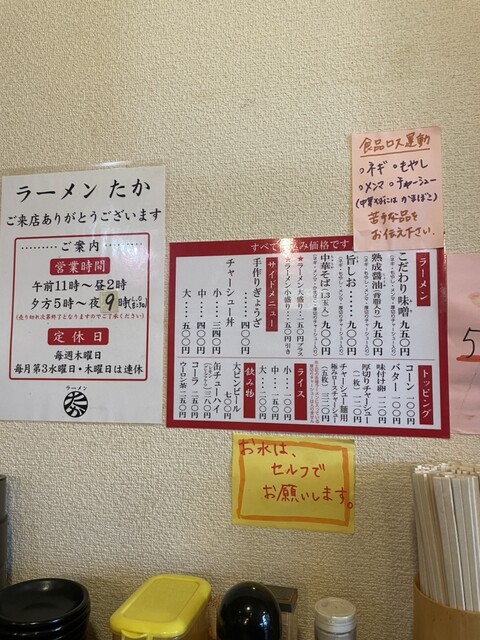 ラーメン たか
ご来店ありがとうございます
ご案内
営業時間
午前11時〜昼2時
夕方5時〜夜9時
(売り切れ次第終了となりますのでご了承ください)
定休日
毎週木曜日
毎月第3水曜日・木曜日は連休
ラーメン
食品ロス運動
○ネギ ○もやし
○メンマ ○チャーシュー
(中華そばには かまぼこ)
苦手な品を
お伝え下さい。
ラーメン
こだわり味噌 九五〇円
熟成醤油(背脂入り) 九五〇円
旨しお 九〇〇円
中華そば(1.3玉入) 九〇〇円
★ラーメン大盛り 一五〇円プラス
★ラーメン小盛り 五〇円引き
サイドメニュー
手作りぎょうざ
四〇〇円
チャーシュー丼
小 三〇〇円
中 四〇〇円
大 五〇〇円
トッピング
コーン 一〇〇円
バター 一〇〇円
味付け卵 一二〇円
厚切りチャーシュー
(一枚) 一二〇円
チャーシュー麺用
極みロースチャーシュー
(五枚) 三二〇円
ライス
小 一〇〇円
中 一五〇円
大 二〇〇円
飲み物
大ビンビール
七〇〇円
缶チューハイ
三八〇円
コーラ 二五〇円
ウーロン茶 二五〇円
お水は、
セルフで
お願いします。
5